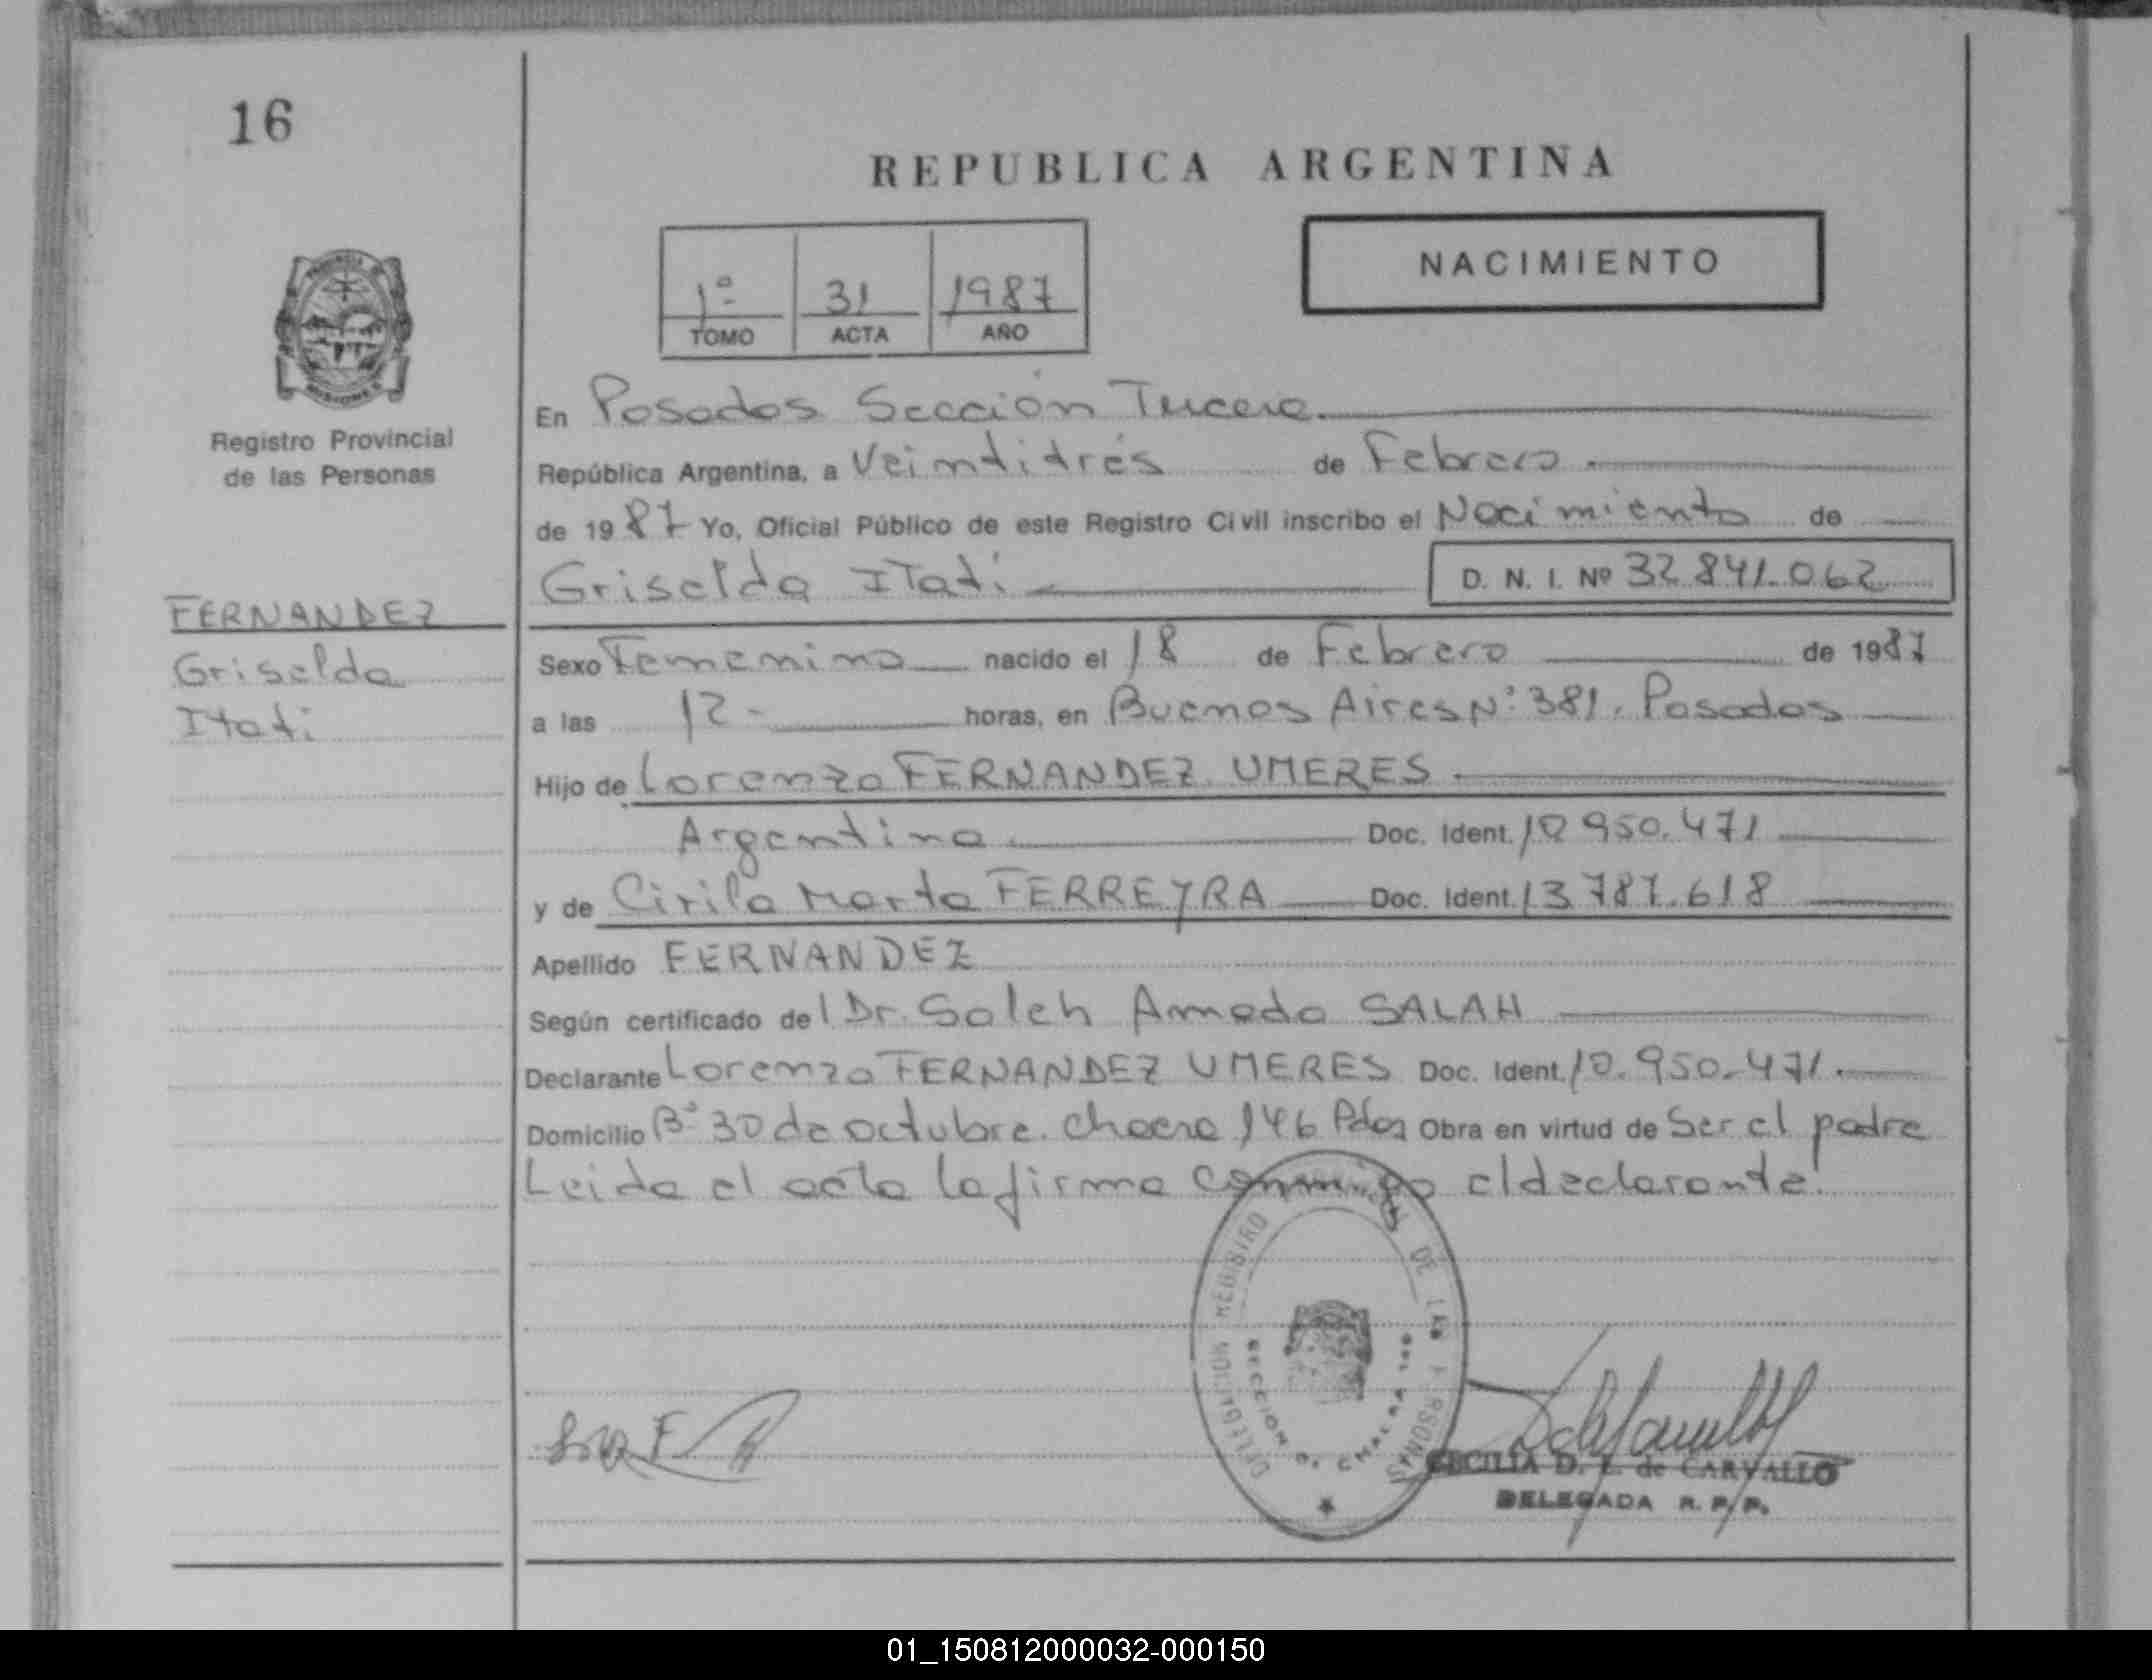 16
REPUBLICA ARGENTINA
NACIMIENTO
1º 31 1987
TOMO ACTA AÑO
Registro Provincial
de las Personas
FERNANDEZ
Griselda
Itati
En Posadas Sección Tercera.
República Argentina, a Veintitrés de Febrero.
de 1987 Yo, Oficial Público de este Registro Civil inscribo el Nacimiento de
Griselda Itati D. N. I. Nº 32.841.062
Sexo Femenino nacido el 18 de Febrero de 1987
a las 12- horas, en Buenos Aires Nº 381. Posadas
Hijo de Lorenzo FERNANDEZ UMERES.
Argentina Doc. Ident. 10.950.471
y de Cirila Marta FERREYRA Doc. Ident. 13.787.618
Apellido FERNANDEZ
Según certificado del Dr. Saleh Amado SALAH
Declarante Lorenzo FERNANDEZ UMERES Doc. Ident. 10.950.471.
Domicilio Bº 30 de octubre. Chacra 146 Pdas Obra en virtud de Ser el padre
Leida el acta la firma conmigo el declarante.
DELEGACION REGISTRO PROVINCIAL DE LAS PERSONAS
SECCION
CECILIA D. L. de CARVALLO
DELEGADA R. P. P.
01_150812000032-000150